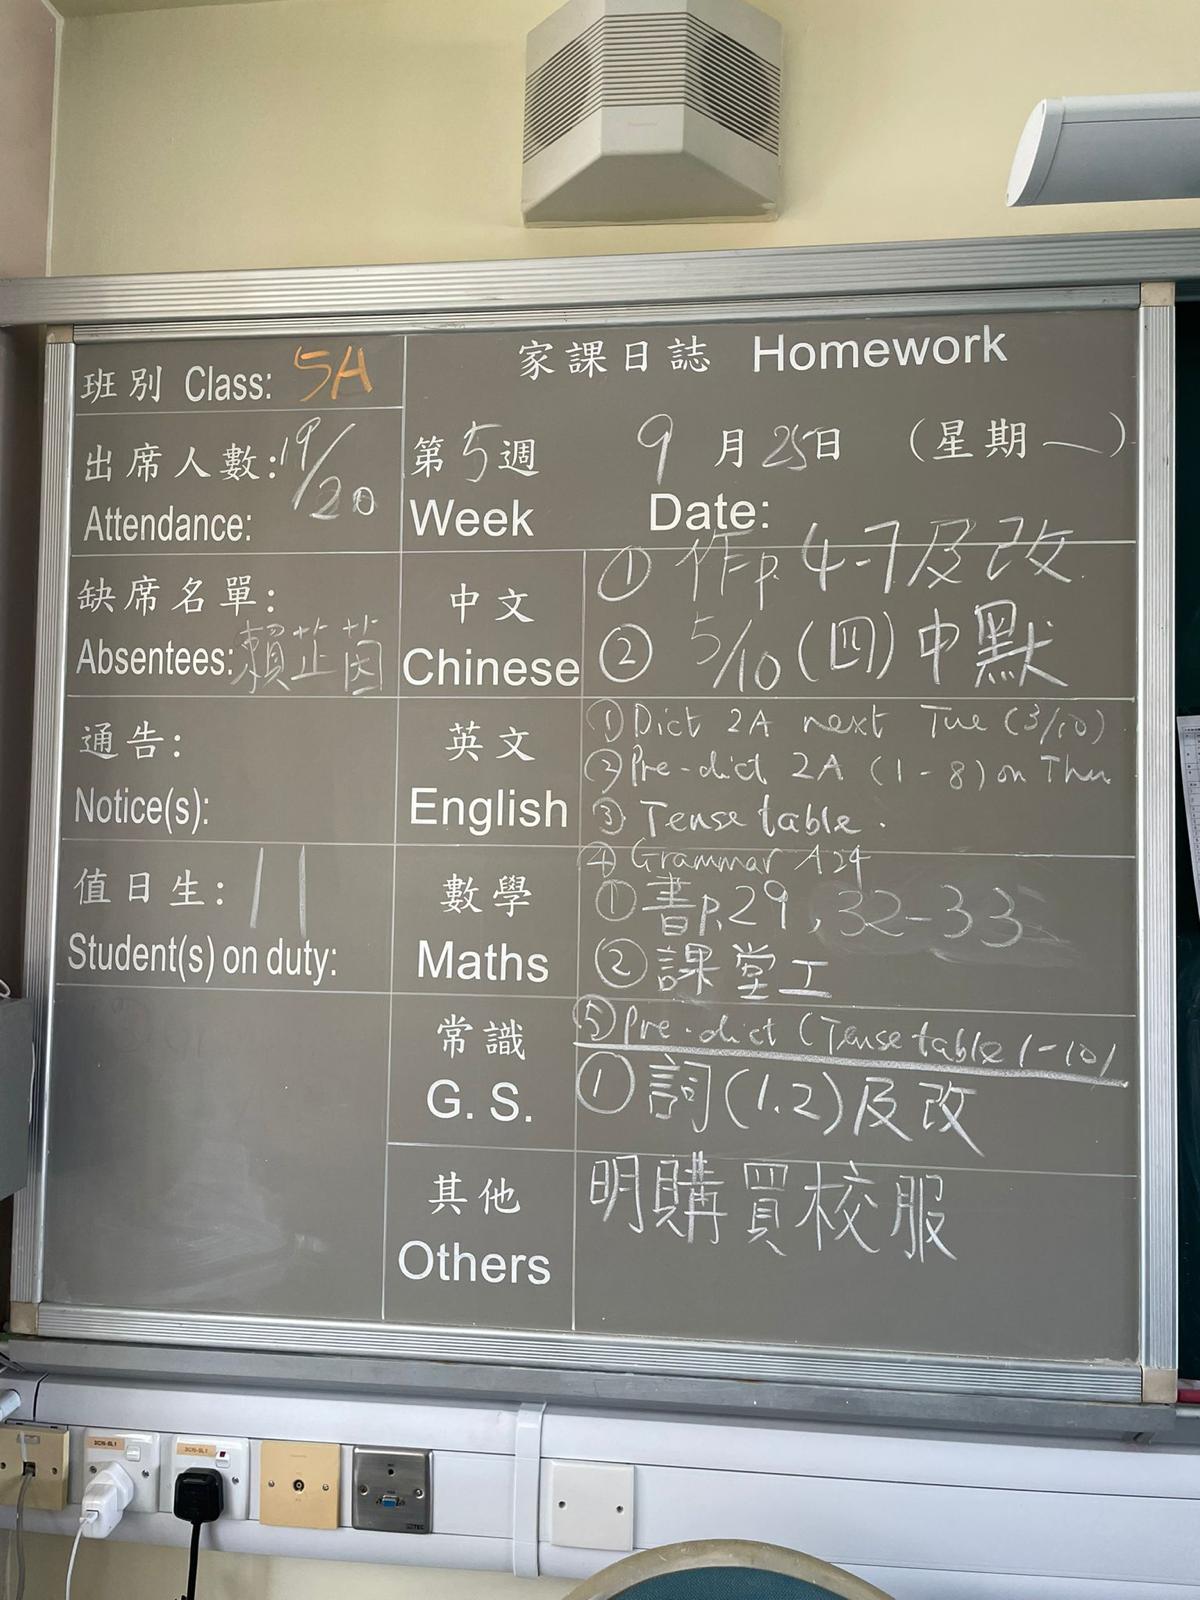 班別 Class: 5A
家課日誌 Homework
出席人數: 19/20
Attendance:
第5週 9月25日 (星期一)
Week Date:
缺席名單:
Absentees: 賴芷茵
中文
Chinese
① 作p. 4-7及改.
② 5/10 (四) 中默
通告:
Notice(s):
英文
English
① Dict 2A next Tue (3/10)
② Pre-dict 2A (1-8) on Thu
③ Tense table.
④ Grammar A24
值日生: 11
Student(s) on duty:
數學
Maths
① 書p.29, 32-33
② 課堂工
⑤ Pre-dict (Tense table 1-10)
常識
G. S.
① 詞(1.2)及改
其他
Others
明購買校服